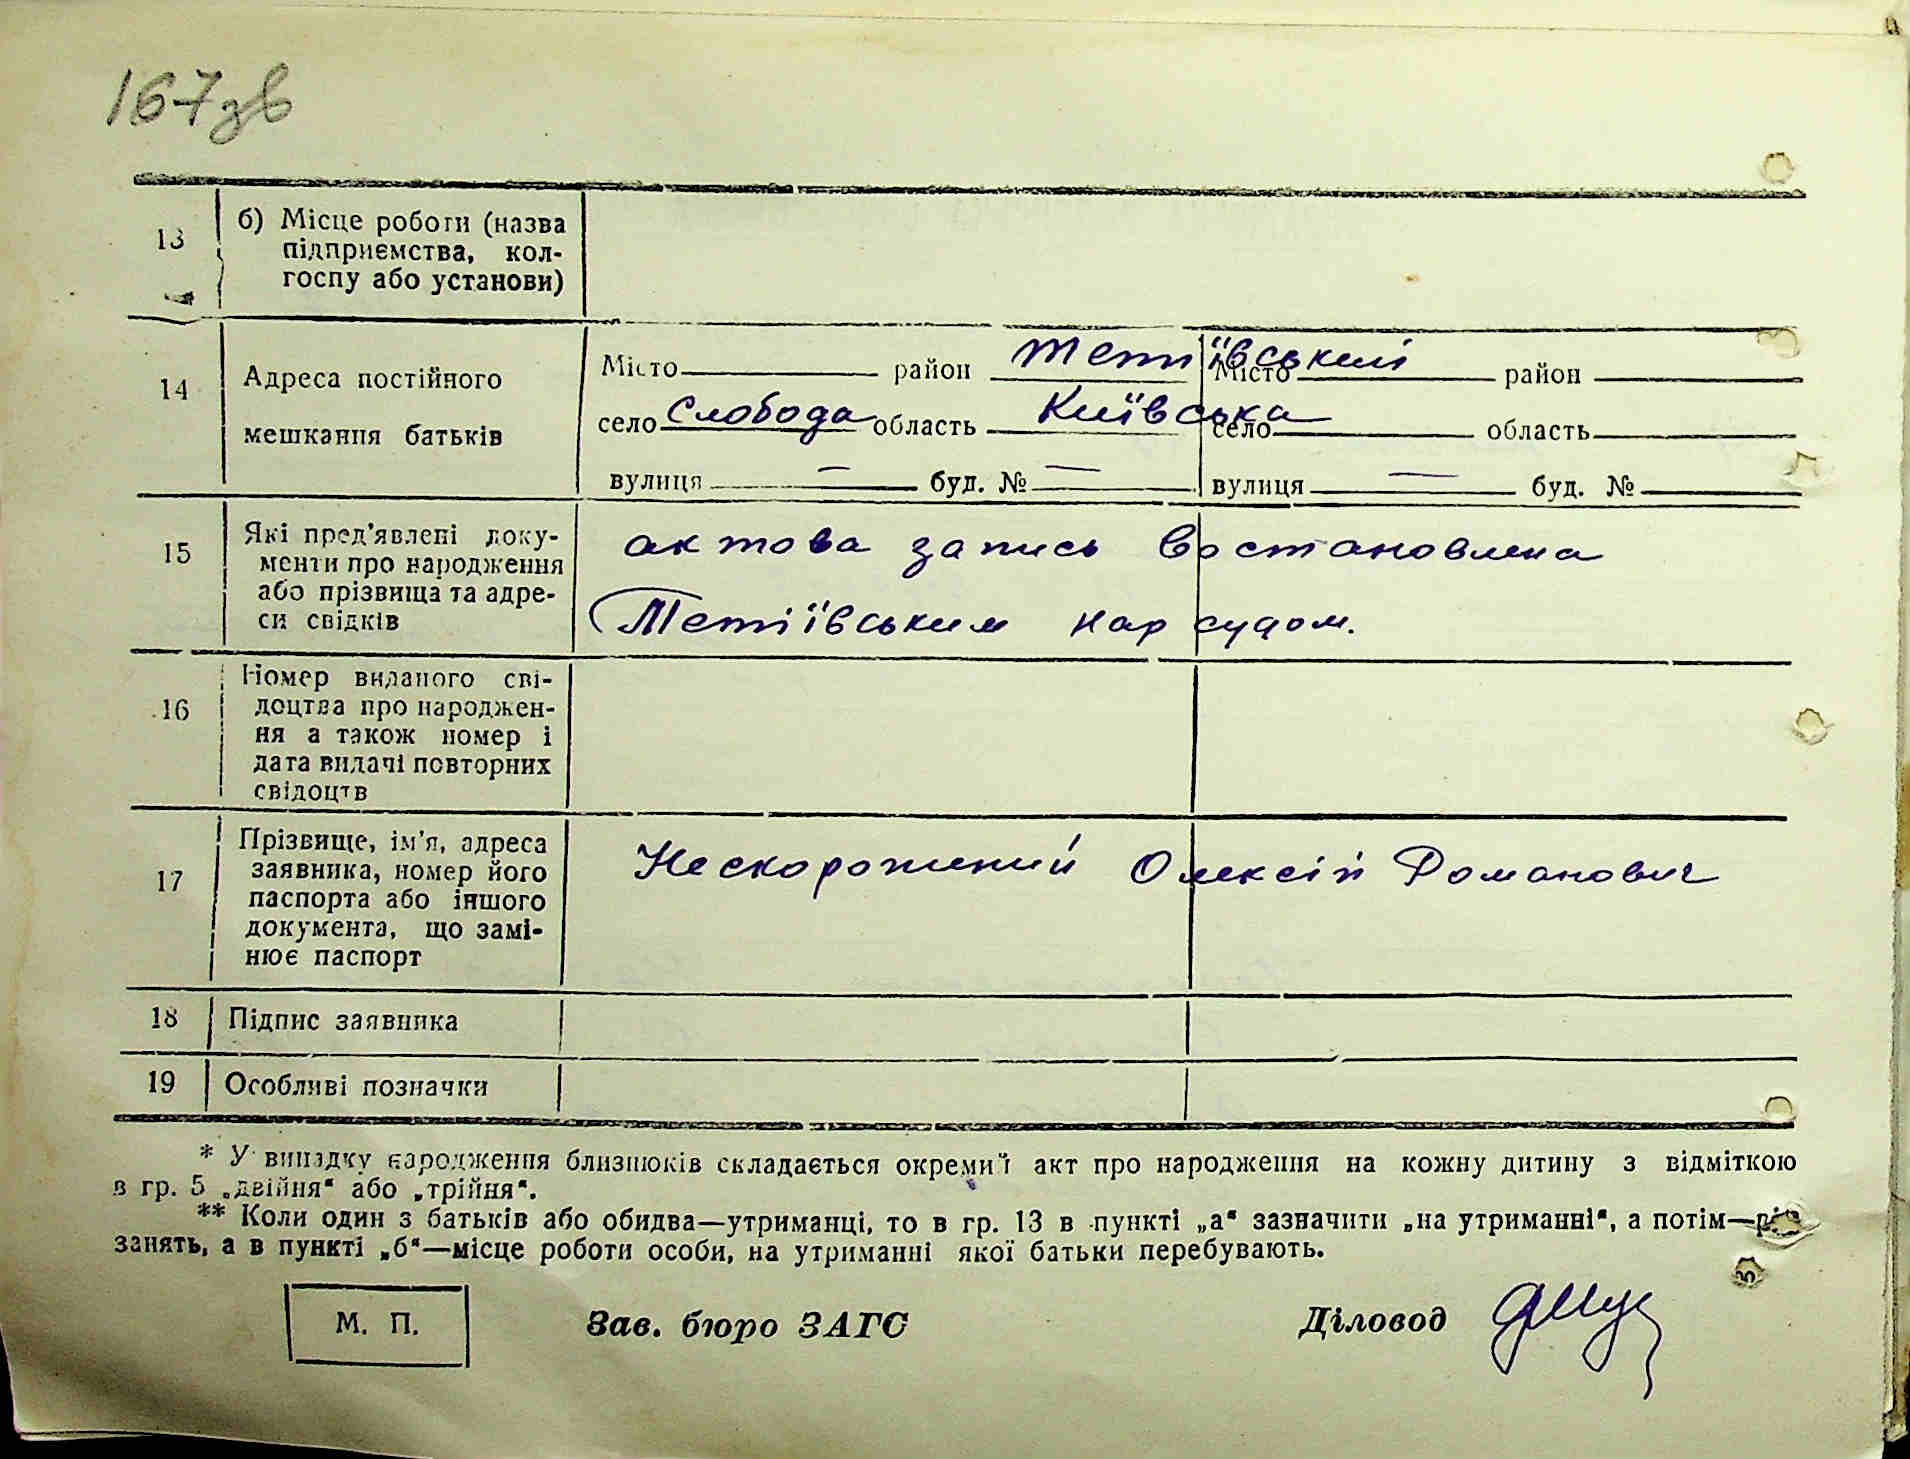 167зв
13 б) Місце роботи (назва
підприємства, кол-
госпу або установи)
14 Адреса постійного
мешкання батьків
Місто район Тетіївський Місто район
село Слобода область Київська село область
вулиця — буд. № — вулиця — буд. №
15 Які пред'явлені доку-
менти про народження
або прізвища та адре-
си свідків
актова запись востановлена
Тетіївським нар судом.
16 Номер виданого сві-
доцтва про народжен-
ня а також номер і
дата видачі повторних
свідоцтв
17 Прізвище, ім'я, адреса
заявника, номер його
паспорта або іншого
документа, що замі-
нює паспорт
Нескорожений Олексій Романович
18 Підпис заявника
19 Особливі позначки
* У випадку народження близнюків складається окремий акт про народження на кожну дитину з відміткою
в гр. 5 „двійня“ або „трійня“.
** Коли один з батьків або обидва—утриманці, то в гр. 13 в пункті „а“ зазначити „на утриманні“, а потім—рід
занять, а в пункті „б“—місце роботи особи, на утриманні якої батьки перебувають.
М. П. Зав. бюро ЗАГС Діловод